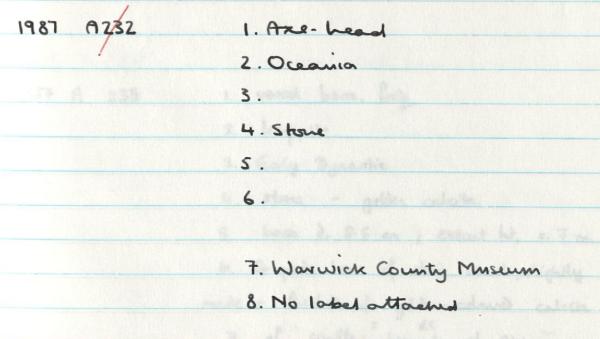 1987 A232 1. Axe-head
2. Oceania
3.
4. Stone
5.
6.
7. Warwick County Museum
8. No label attached